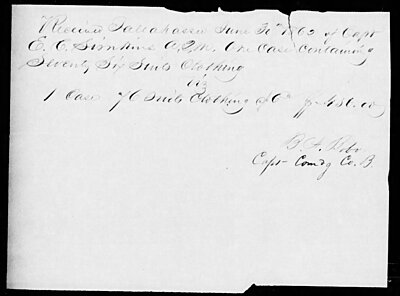 Received Tallahassee June 30th 1862 of Capt
E. C. Simkins A.Q.M. One Case Containing
Seventy Six Suits Clothing
Viz
1 Case 76 Suits Clothing
B.
Capt Comdg Co. B.